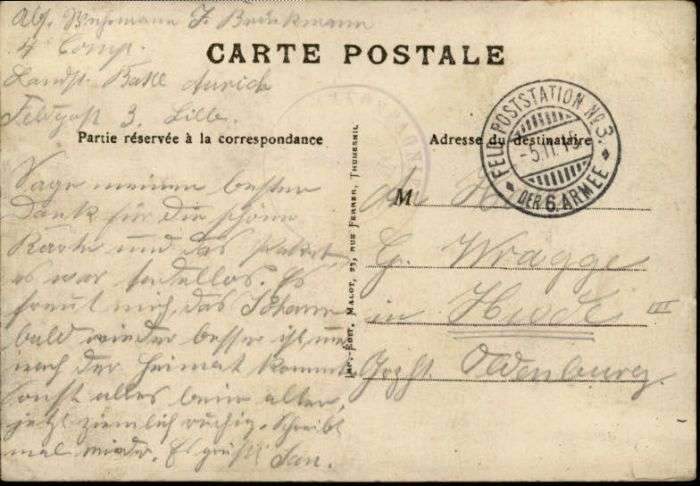 Abs. Wehrmann J. Brinkmann
4 Comp.
Landst. Batl Aurich
Feldpost 3. Lille.
CARTE POSTALE
Partie réservée à la correspondance
Adresse du destinataire
FELD-POSTSTATION No. 3.
- 5.11.15
* DER 6. ARMEE *
IMP.-PHOT. MALOT, 23, RUE FERRER, THUMESNIL
Sage meinen besten
Dank für die schöne
Karte und das Paket
es war tadellos. Es
freut mich das Johann
bald wieder besser ist und
nach der Heimat kommt
sonst alles beim alten,
jetzt ziemlich ruhig. Schreibt
mal wieder. Es grüßt Jan.
M
An
G. Wragge
in Hude III
Großh. Oldenburg.